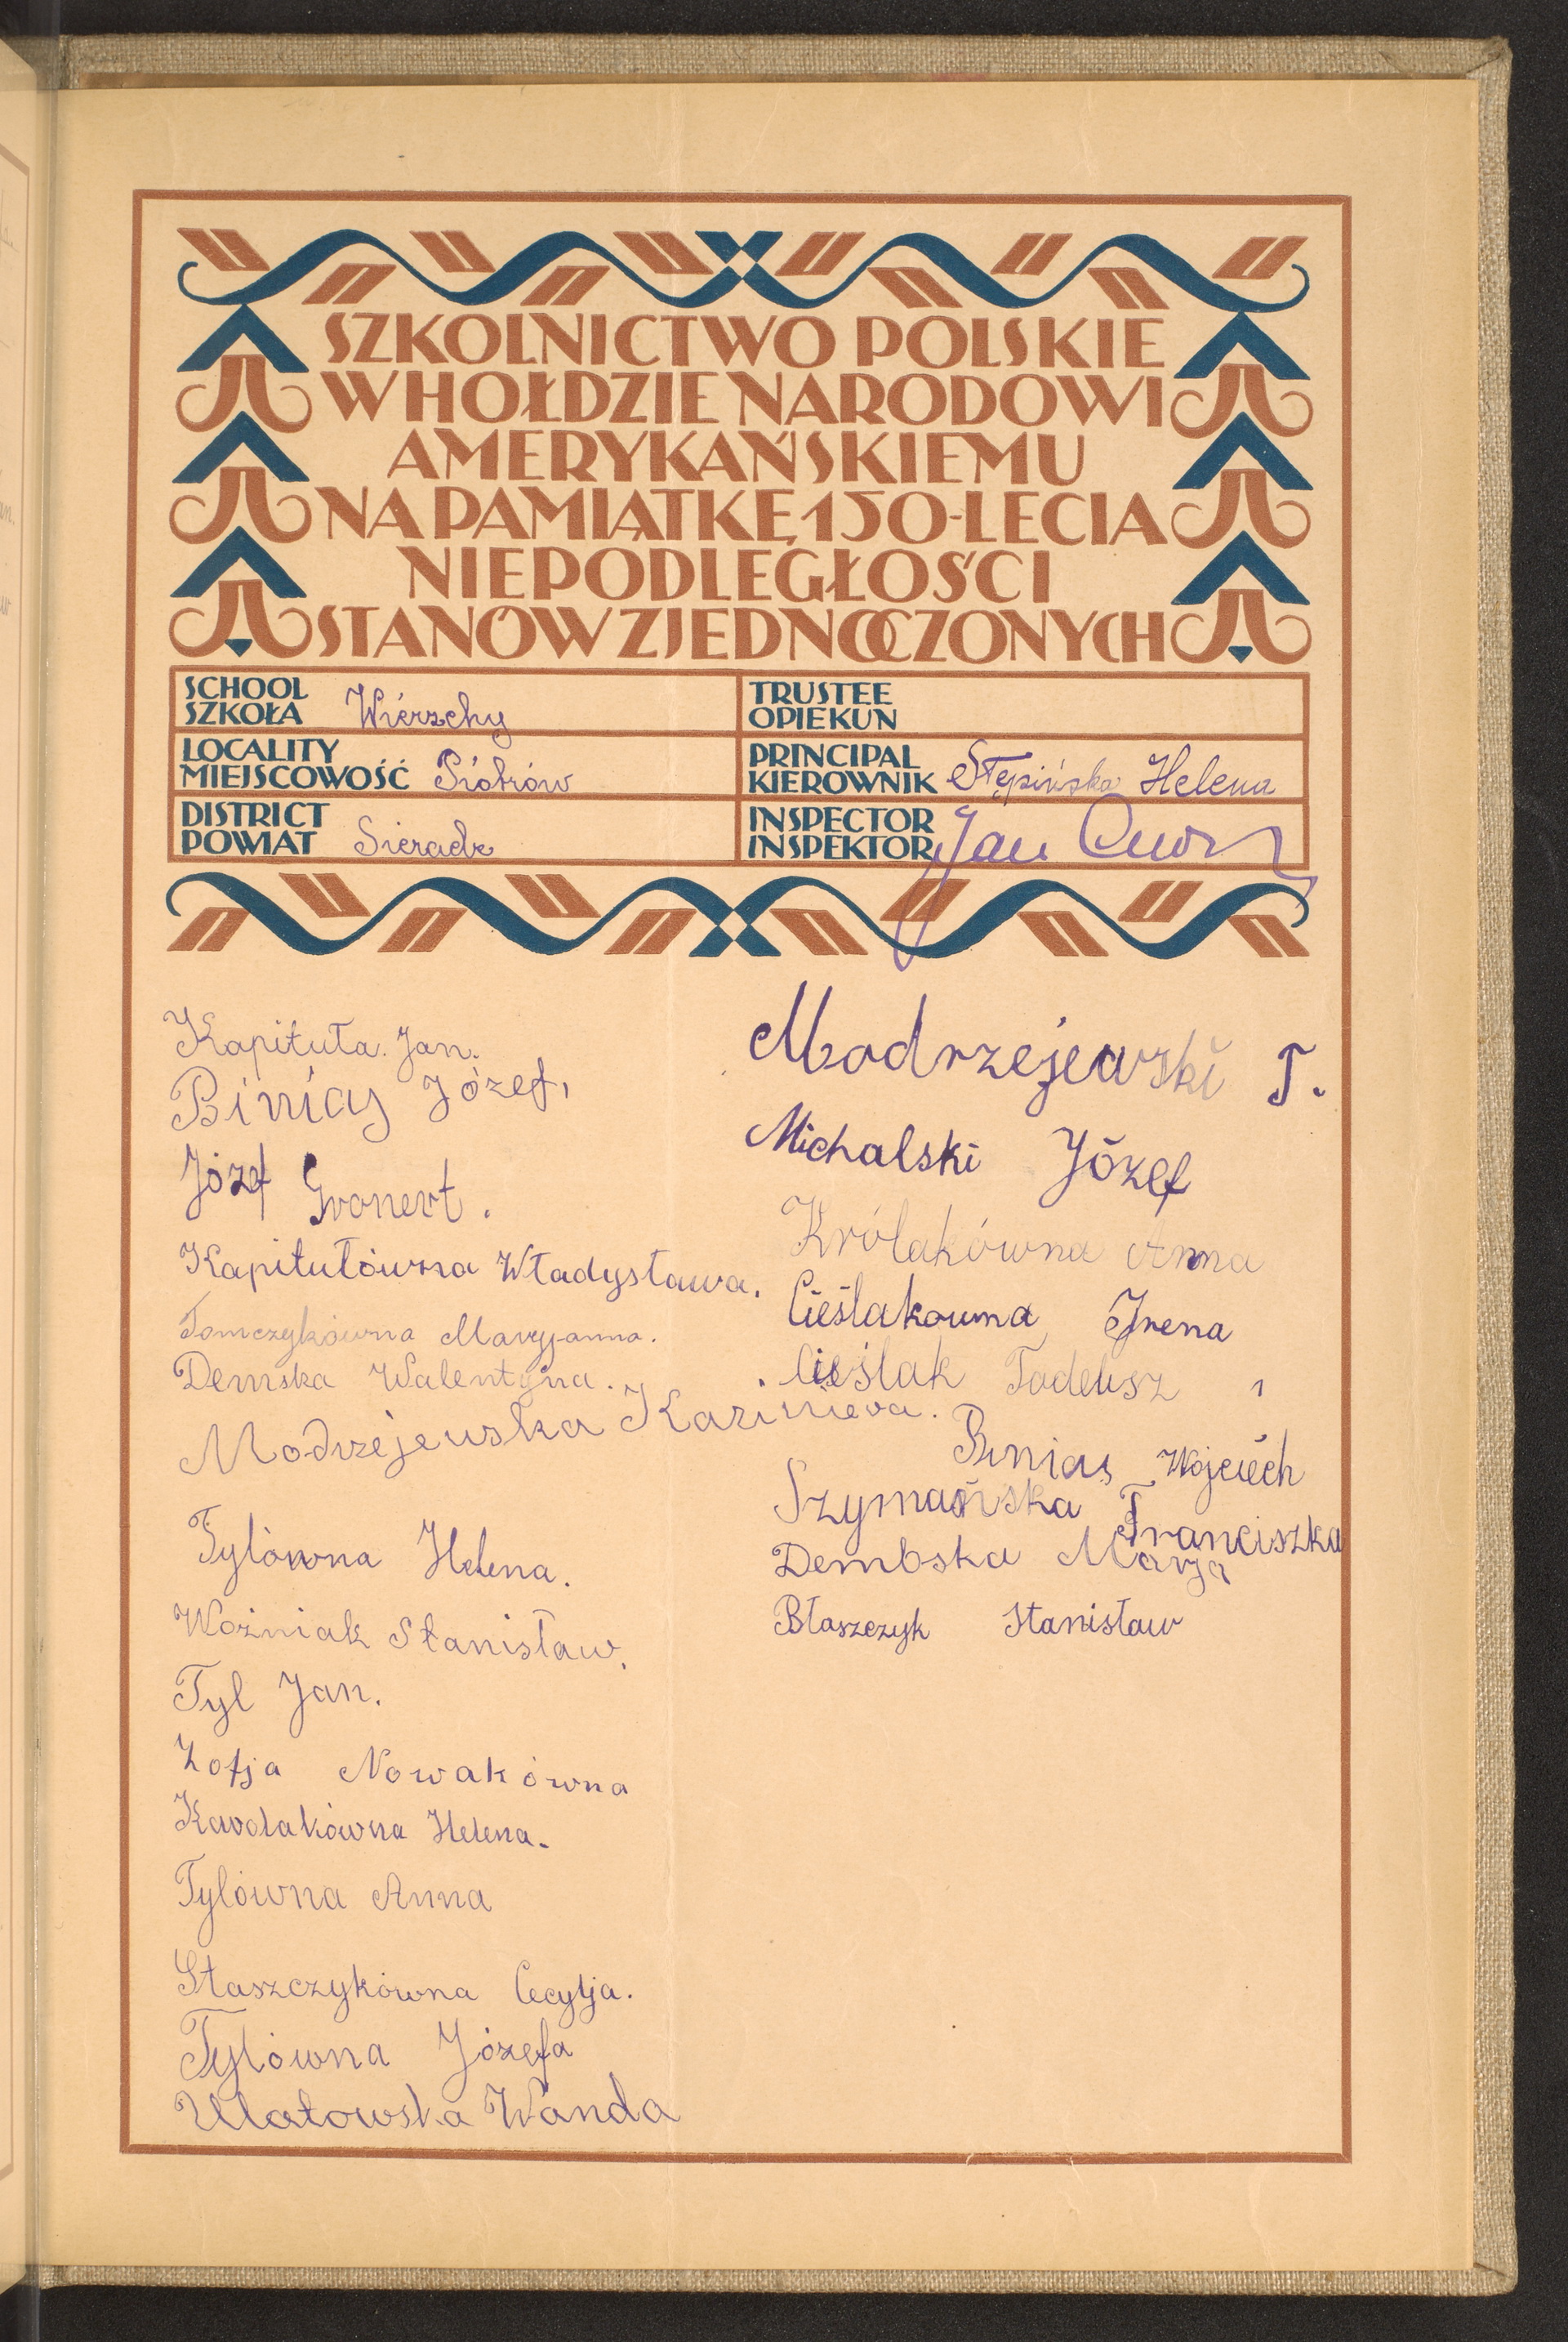 SZKOLNICTWO POLSKIE
W HOŁDZIE NARODOWI
AMERYKAŃSKIEMU
NA PAMIĄTKĘ 150-LECIA
NIEPODLEGŁOŚCI
STANÓW ZJEDNOCZONYCH
SCHOOL
SZKOŁA Wierzchy
LOCALITY
MIEJSCOWOŚĆ Piotrów
DISTRICT
POWIAT Sieradz
TRUSTEE
OPIEKUN
PRINCIPAL
KIEROWNIK Stępińska Helena
INSPECTOR
INSPEKTOR Jan
Kapituła. Jan.
Binias Józef,
Józef Gronert.
Kapitułówna Władysława.
Tomczykówna Maryjanna.
Demska Walentyna.
Modrzejewska Kazimiera.
Tylówna Helena.
Woźniak Stanisław.
Tyl Jan.
Zofja Nowakówna
Karolakówna Helena.
Tylówna Anna
Staszczykówna Cecylja.
Tylówna Józefa
Ulatowska Wanda
Modrzejewski T.
Michalski Józef
Królakówna Anna
Cieślakowna Irena
Cieślak Tadeusz
Binias Wojciech
Szymańska Franciszka
Dembska Marja
Błaszczyk Stanisław